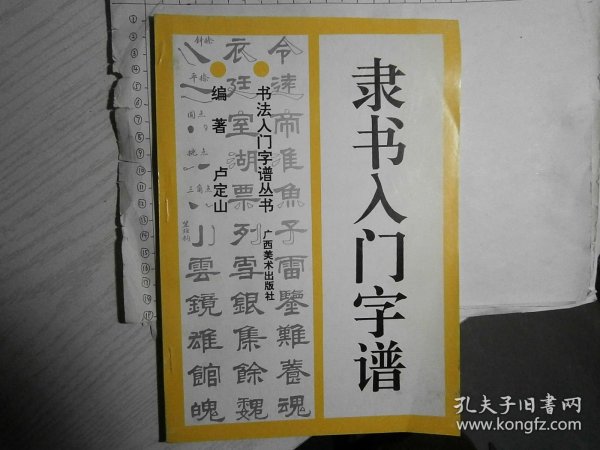 隶书入门字谱
书法入门字谱丛书
广西美术出版社
编著 卢定山
令
帝淮魚子雷鑒難養魂
衣廷室湖票列雪銀集餘魏
小雲鏡雄館魄
斜捺
平捺
圆点
孔夫子旧书网
www.kongfz.com